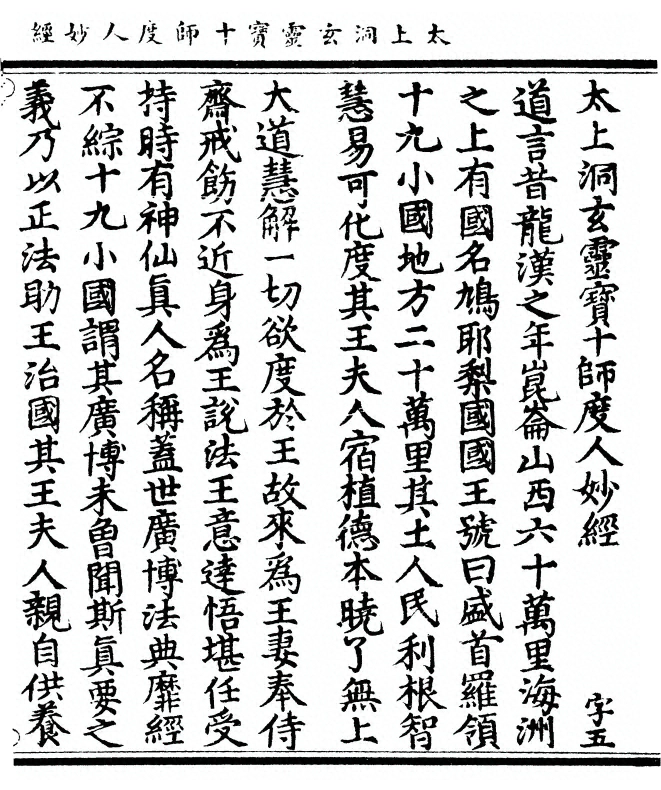 太上洞玄靈寶十師度人妙經
太上洞玄靈寶十師度人妙經 字五
道言昔龍漢之年崑崙山西六十萬里海洲
之上有國名鳩耶梨國國王號曰盛首羅領
十九小國地方二十萬里其土人民利根智
慧易可化度其王夫人宿植德本曉了無上
大道慧解一切欲度於王故來為王妻奉侍
齋戒飭不近身為王說法王意達悟堪任受
持時有神仙真人名稱蓋世廣博法典靡經
不綜十九小國謂其廣博未曾聞斯真要之
義乃以正法助王治國其王夫人親自供養